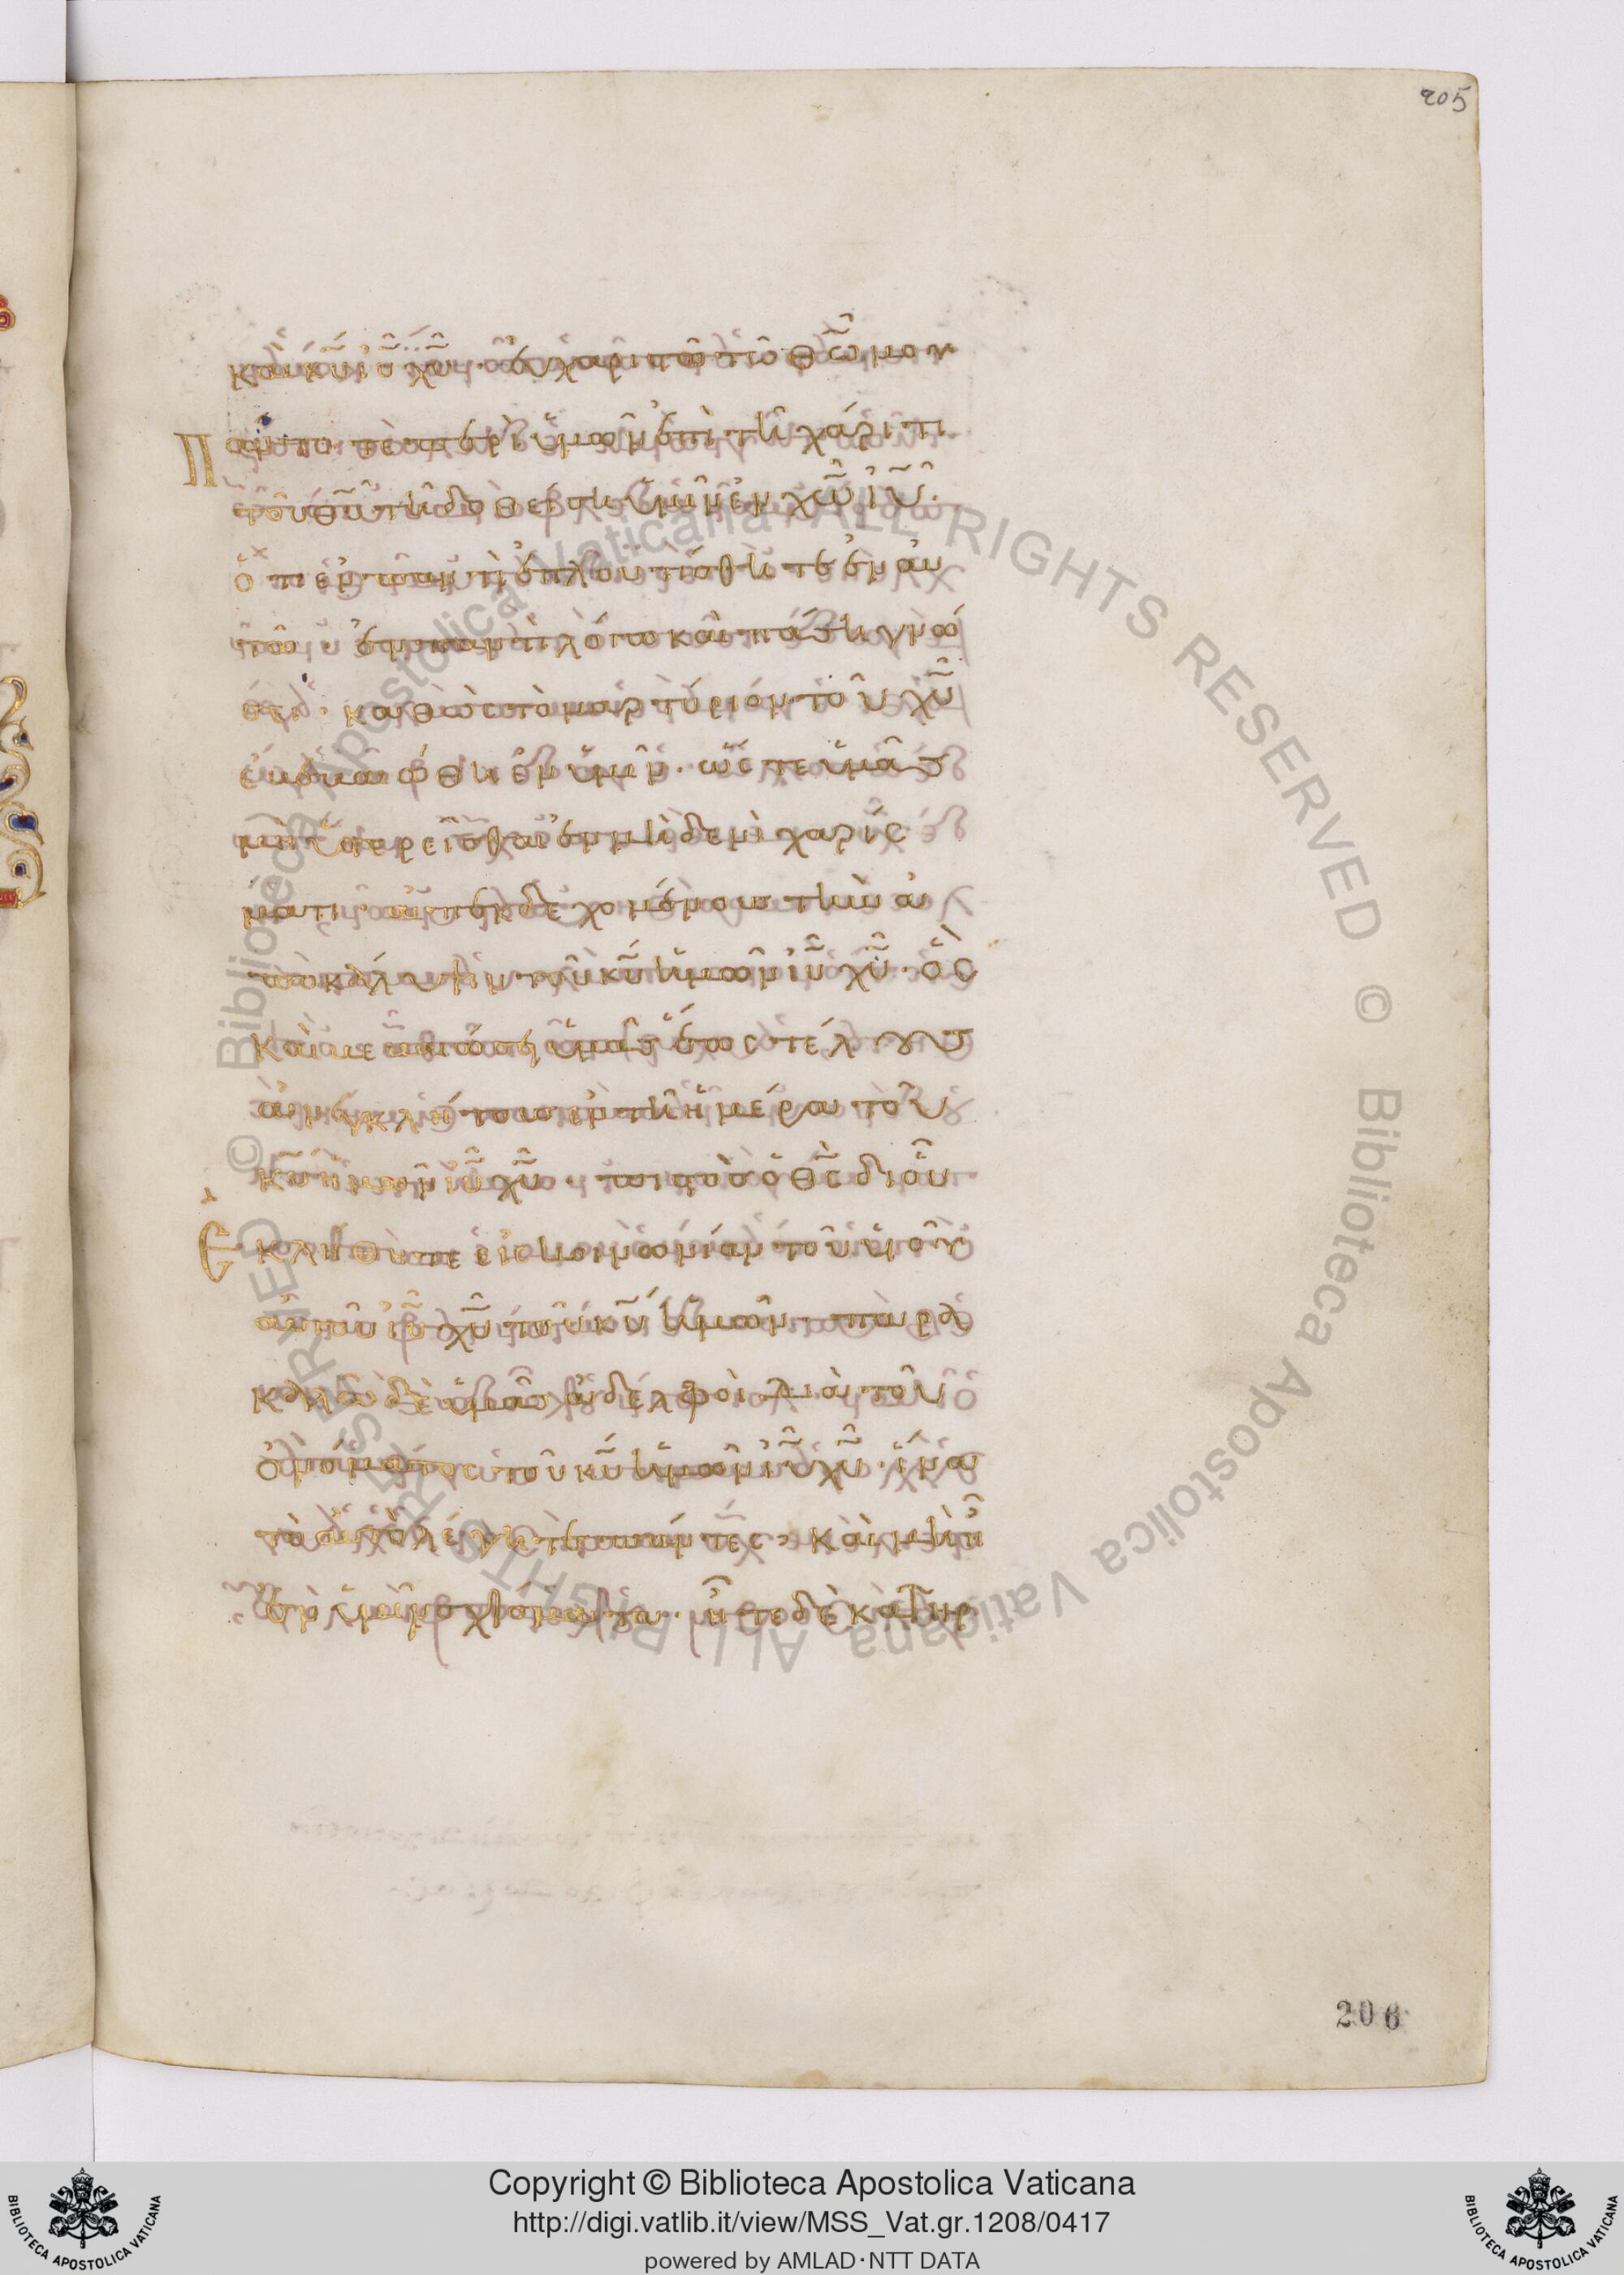 205
καὶ κυ ιυ χυ· εὐχαριστῶ τῶ θω μου
Πάντοτε περὶ ὑμῶν ἐπὶ τῆ χάριτι
τοῦ θυ τῆ δοθείση ὑμῖν ἐν χω ιυ·
ὅτι ἐν παντὶ ἐπλουτίσθητε ἐν αὐ
τῶ ἐν παντὶ λόγω καὶ πάση γνώ
σει· καθὼς τὸ μαρτύριον τοῦ χυ
ἐβεβαιώθη ἐν ὑμῖν· ὥστε ὑμᾶς
μὴ ὑστερεῖσθαι ἐν μηδενὶ χαρίσ
ματι ἀπεκδεχομένους τὴν ἀ
ποκάλυψιν τοῦ κυ ἡμῶν ιυ χυ· ὃς
καὶ βεβαιώσει ὑμᾶς ἕως τέλους
ἀνεγκλήτους ἐν τῆ ἡμέρα τοῦ
κυ ἡμῶν ιυ χυ· πιστὸς ὁ θς δι οὗ
Εκλήθητε εἰς κοινωνίαν τοῦ υυ
αὐτοῦ ιυ χυ τοῦ κυ ἡμῶν· παρα
καλῶ δὲ ὑμᾶς ἀδελφοὶ διὰ τοῦ
ὀνόματος τοῦ κυ ἡμῶν ιυ χυ· ἵνα
τὸ αὐτὸ λέγητε πάντες· καὶ μὴ ἦ
ἐν ὑμῖν σχίσματα· ἦτε δὲ κατηρ
206
© Biblioteca Apostolica Vaticana ALL RIGHTS RESERVED © Biblioteca Apostolica Vaticana ALL RIGHTS RESERVED
Copyright © Biblioteca Apostolica Vaticana
http://digi.vatlib.it/view/MSS_Vat.gr.1208/0417
powered by AMLAD·NTT DATA
BIBLIOTECA APOSTOLICA VATICANA
BIBLIOTECA APOSTOLICA VATICANA